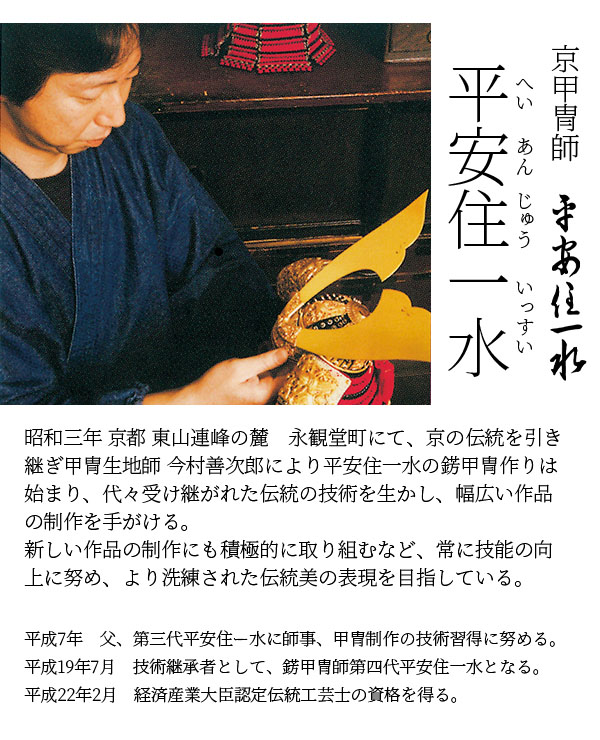 京甲冑師 平安住一水
平安住一水
へい あん じゅう いっすい
昭和三年 京都 東山連峰の麓　永観堂町にて、京の伝統を引き
継ぎ甲冑生地師 今村善次郎により平安住一水の錺甲冑作りは
始まり、代々受け継がれた伝統の技術を生かし、幅広い作品
の制作を手がける。
新しい作品の制作にも積極的に取り組むなど、常に技能の向
上に努め、より洗練された伝統美の表現を目指している。
平成7年　父、第三代平安住一水に師事、甲冑制作の技術習得に努める。
平成19年7月　技術継承者として、錺甲冑師第四代平安住一水となる。
平成22年2月　経済産業大臣認定伝統工芸士の資格を得る。